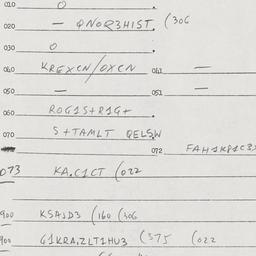 010 O
020 — QNOR3HIST. (306
030 O
040 KREXCN/OXCN 041 —
050 — 051 —
060 ROG1S+R1G+
070 S+TAMLT QELSW
072 FAH1KP1C3
073 KA.C1CT (022
900 KSAJD3 (160 (306
900 G1KRA.ZLT1HU3 (375 (022